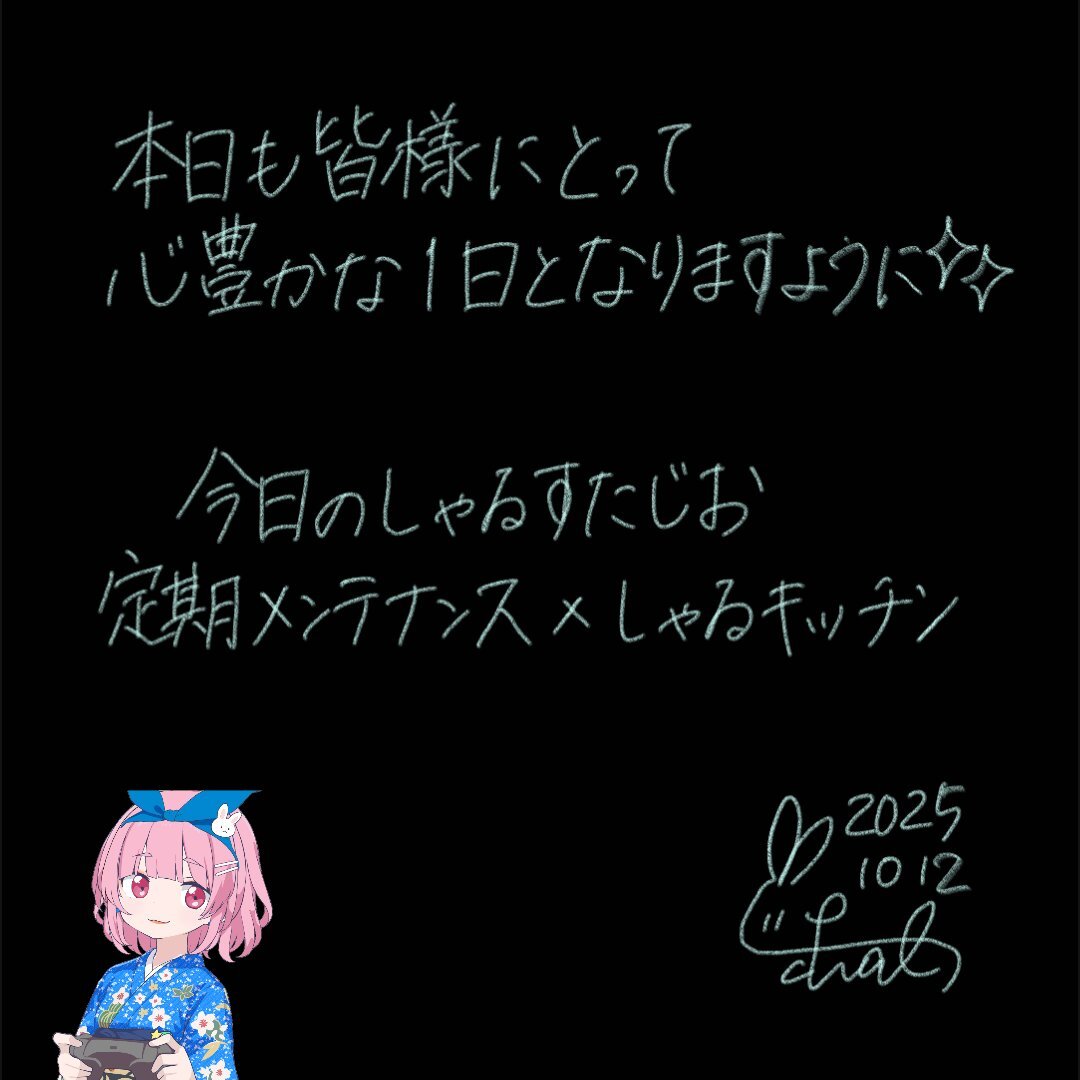 本日も皆様にとって
心豊かな1日となりますように✨
今日のしゃるすたじお
定期メンテナンス×しゃるキッチン
2025
10 12